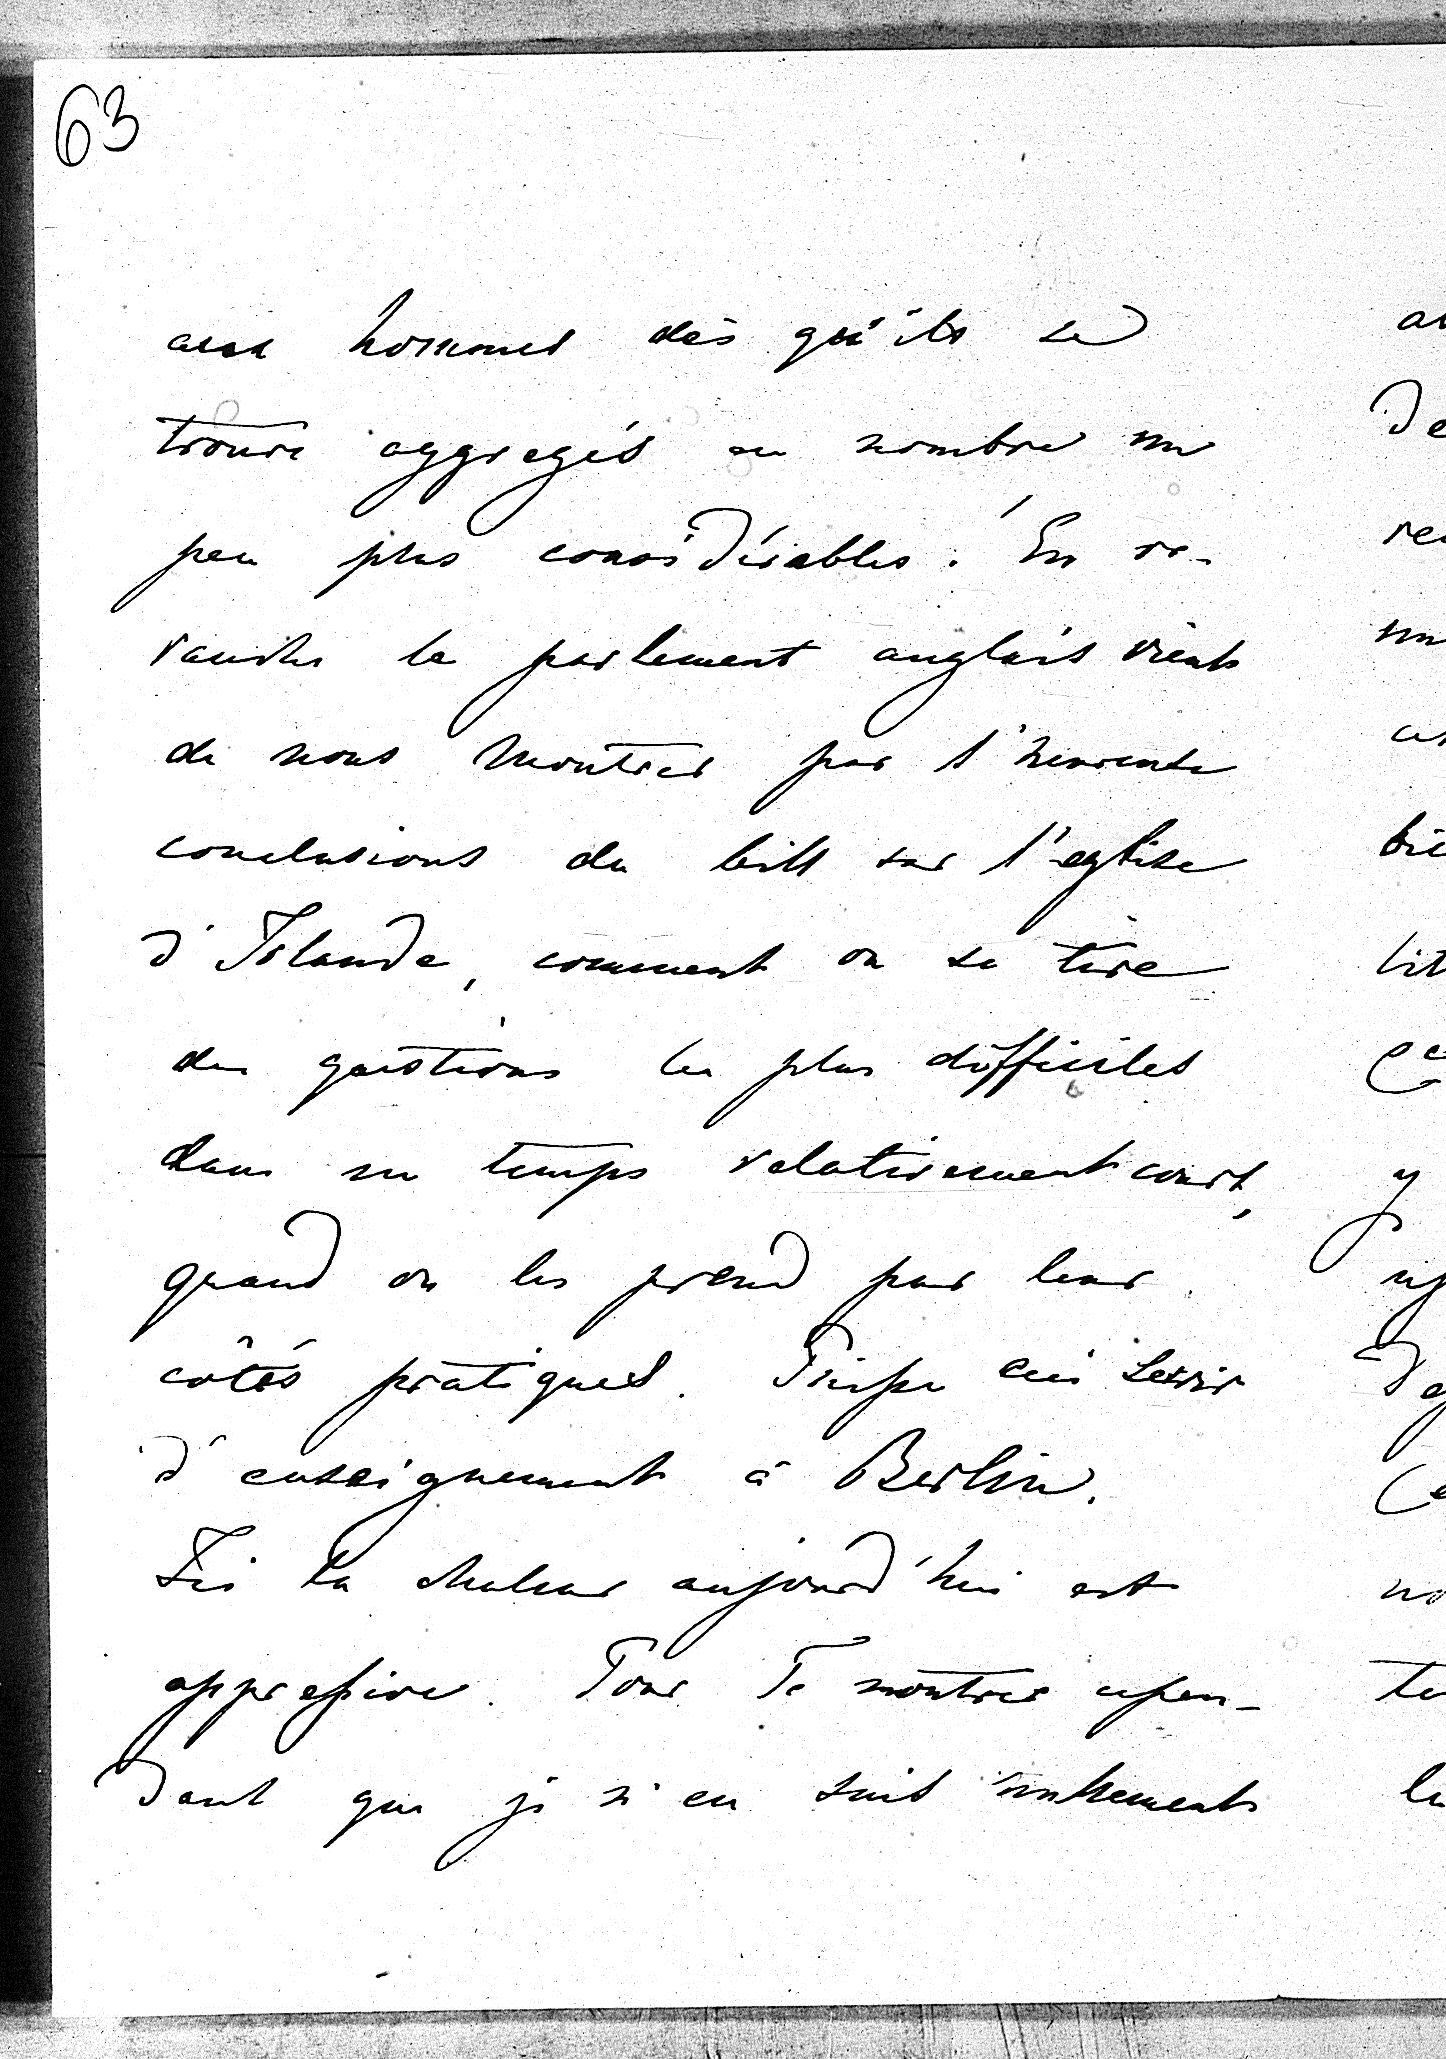 63
aux hommes dès qu'ils se
trouve aggregés en nombre un
peu plus considérables. En re-
vanche le parlement anglais vient
de nous montrer par l'heureuse
conclusions du bill sur l'eglise
d'Irlande, comment on se tire
des questions les plus difficiles
dans un temps relativement court,
quand on les prend par leur
côtés pratiques. Puisse ceci servir
d'enseignement à Berlin.
Ici la chaleur aujourd'hui est
oppressive. Pour Te montrer cepen-
dant que je n'en suis nullement